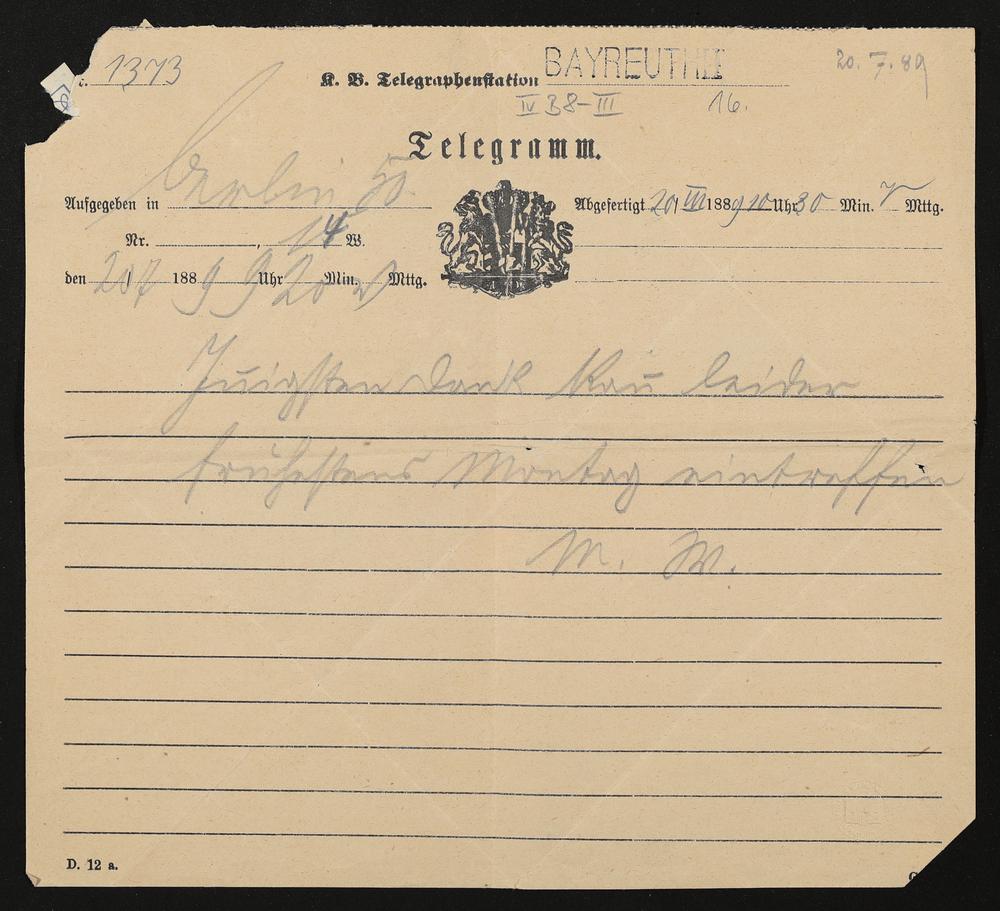 1373
K. B. Telegraphenstation BAYREUTH II
20. 7. 89
IV B 8-III 16.
Telegramm.
Aufgegeben in Berlin 50.
Abgefertigt 20/VII 1889 10 Uhr 30 Min. V Mttg.
Nr. , 14 W.
den 20/7 1889 9 Uhr 20 Min. V Mttg.
Innigsten Dank Kañ leider
frühestens Montag eintreffen
M. W.
D. 12 a.